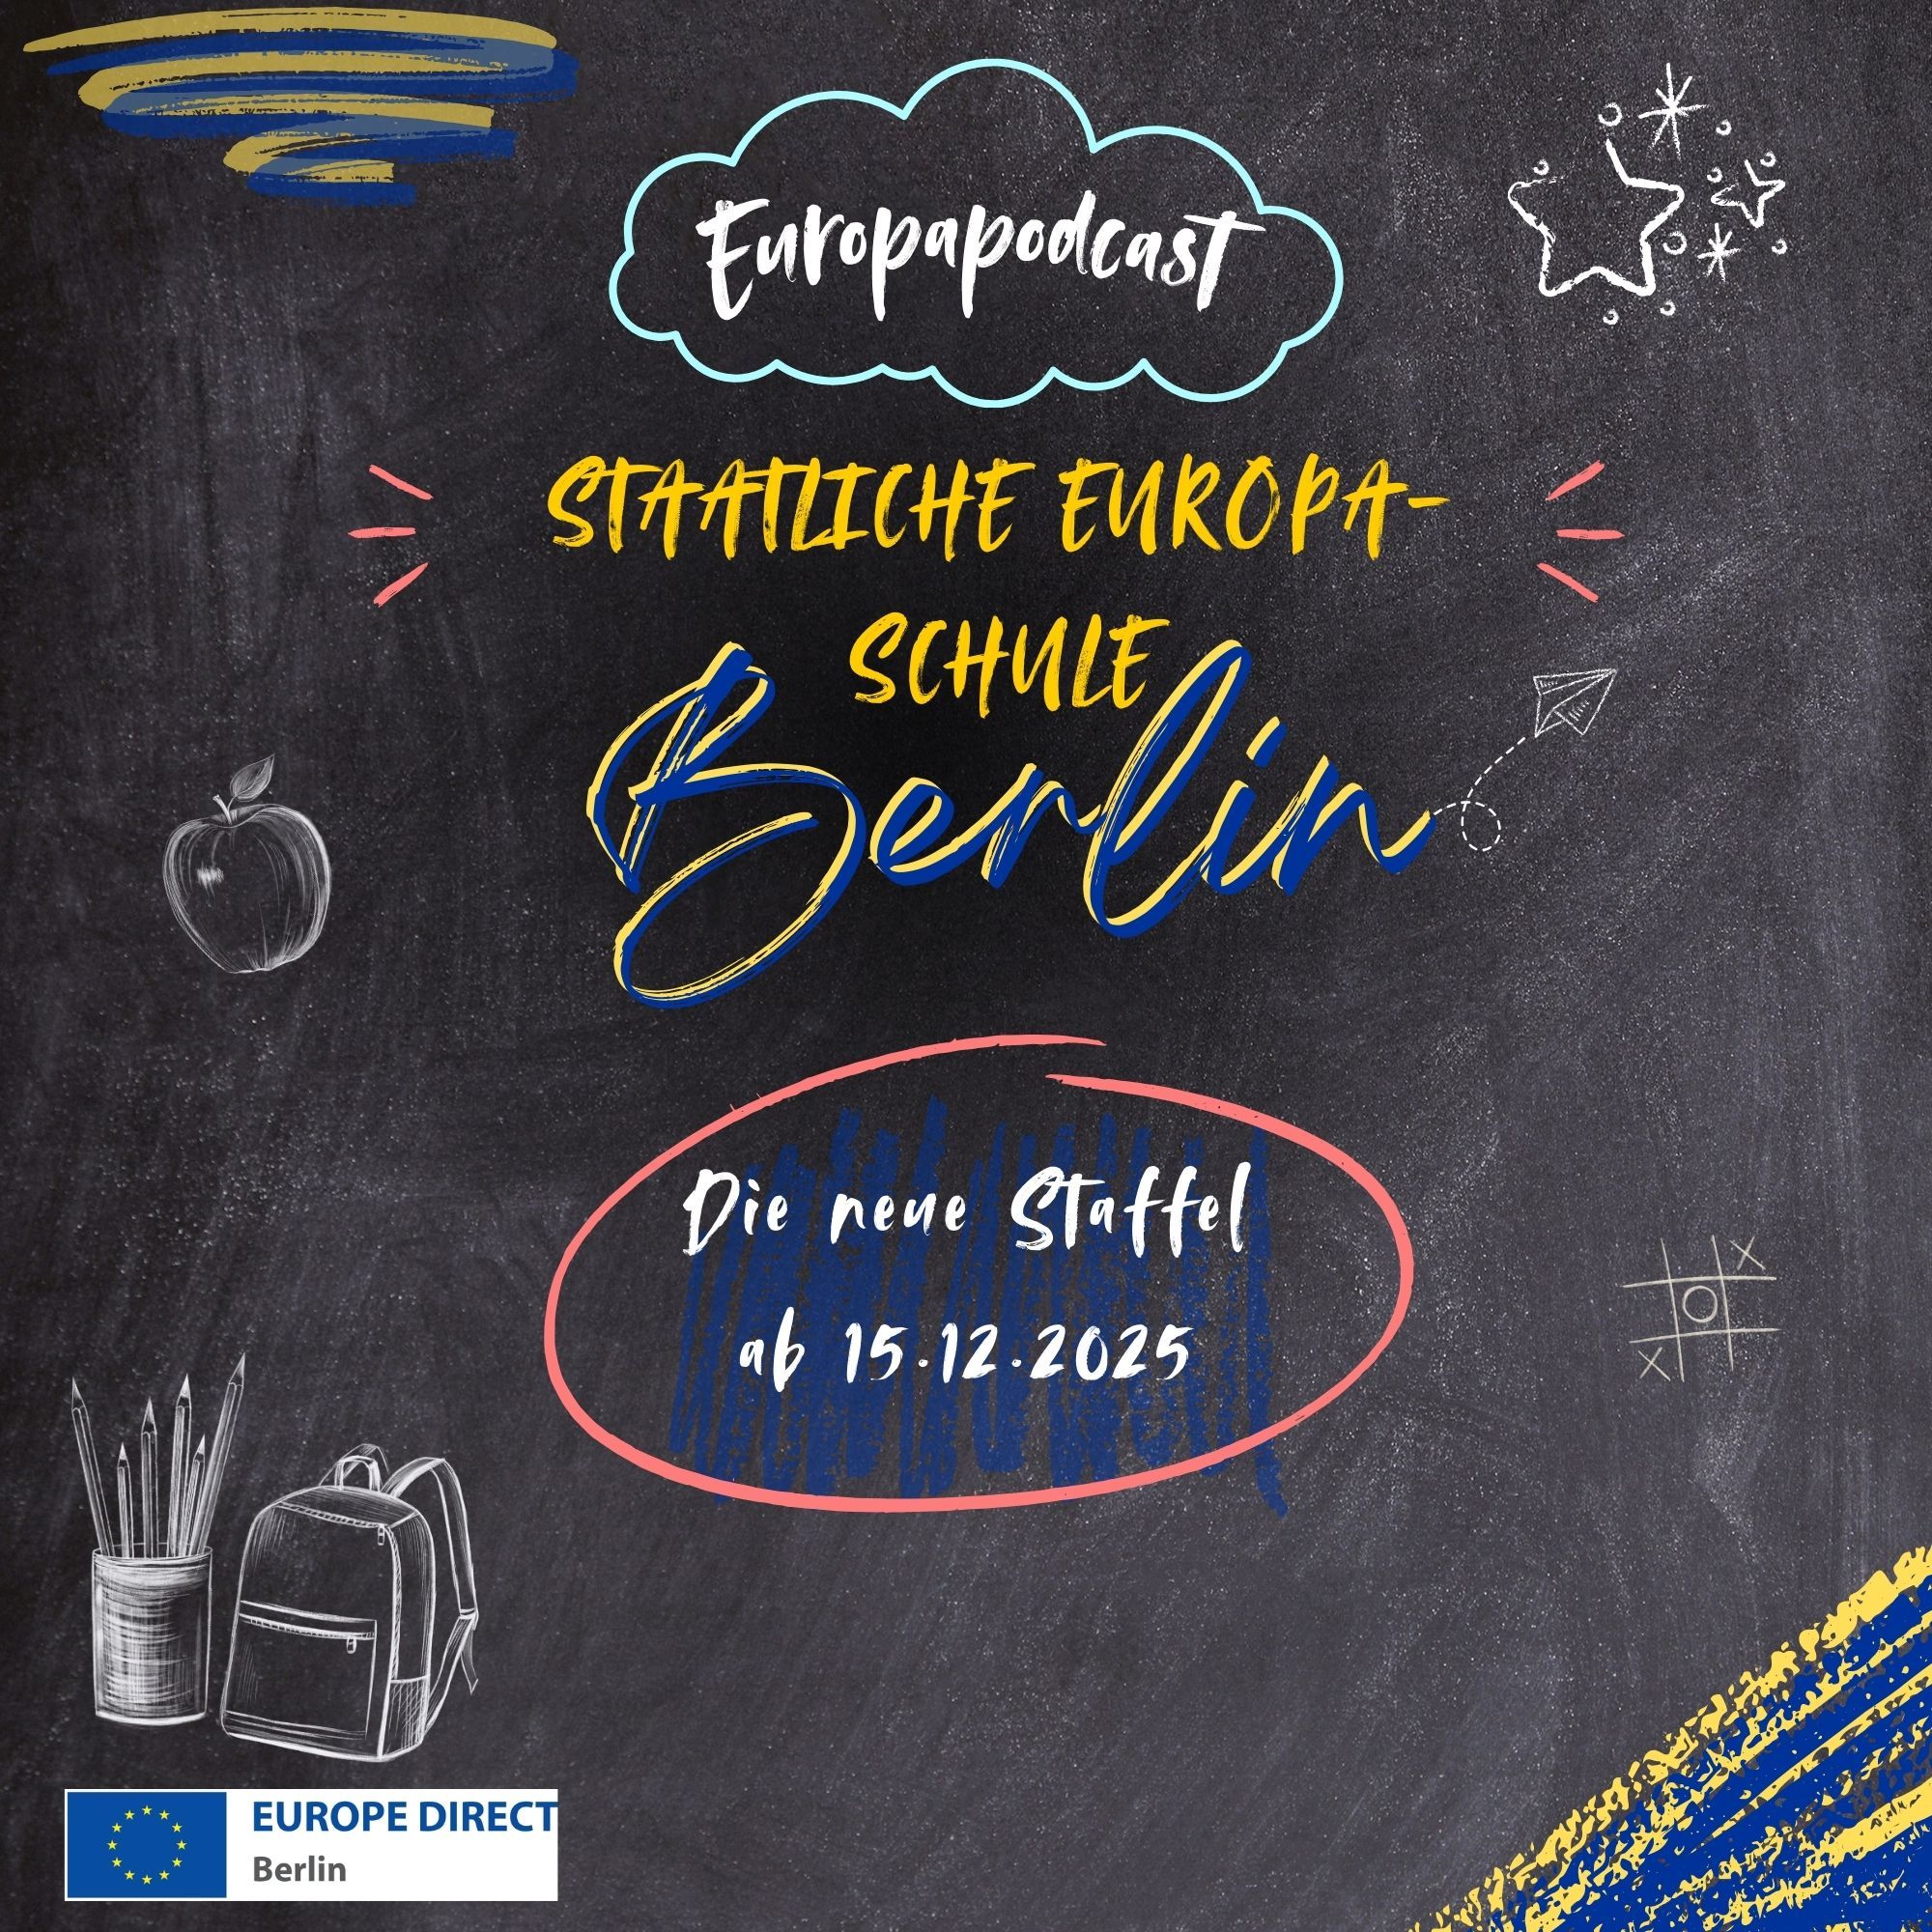 Europapodcast
STAATLICHE EUROPA-
SCHULE
Berlin
Die neue Staffel
ab 15.12.2025
X
O
X
EUROPE DIRECT
Berlin